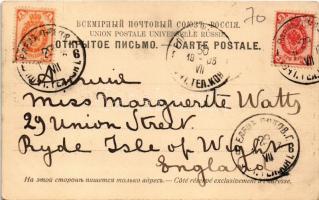 70
ВСЕМІРНЫЙ ПОЧТОВЫЙ СОЮЗЪ. РОССІЯ.
UNION POSTALE UNIVERSELLE. RUSSIE.
ОТКРЫТОЕ ПИСЬМО. — CARTE POSTALE.
Miss Marguerite Watts
29 Union Street.
Ryde Isle of Wight
England
На этой сторонѣ пишется только адресъ. — Côté réservé exclusivement à l'adresse.